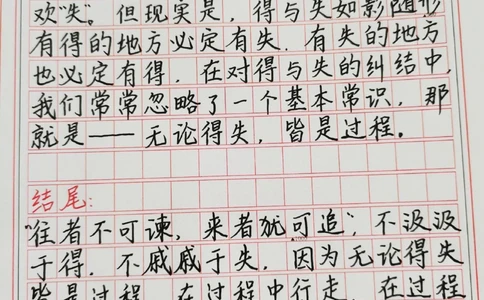 欢“失”。但现实是，得与失如影随形
有得的地方必定有失，有失的地方
也必定有得，在对得与失的纠结中，
我们常常忽略了一个基本常识，那
就是——无论得失，皆是过程。
结尾：
“往者不可谏，来者犹可追”，不汲汲
于得，不戚戚于失，因为无论得失
皆是过程，在过程中行走，在过程